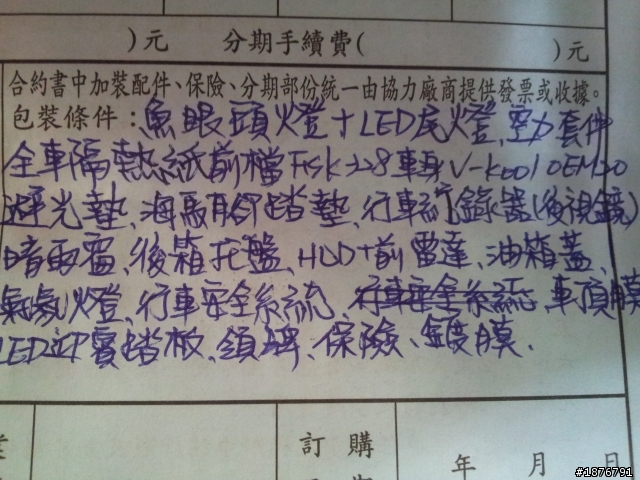 )元 分期手續費( )元
合約書中加裝配件、保險、分期部份統一由協力廠商提供發票或收據。
包裝條件：魚眼頭燈+LED尾燈、空力套件
全車隔熱紙前檔FSK228車身V-Kool OEM20
避光墊、海馬腳踏墊、行車紀錄器(後視鏡)
晴雨窗、後箱托盤、HUD+前雷達、油箱蓋、
氣氛燈、行車安全系統、行車安全系統、車頂膜
LED迎賓踏板、領牌、保險、鍍膜.
訂購
年 月 日
#1876791